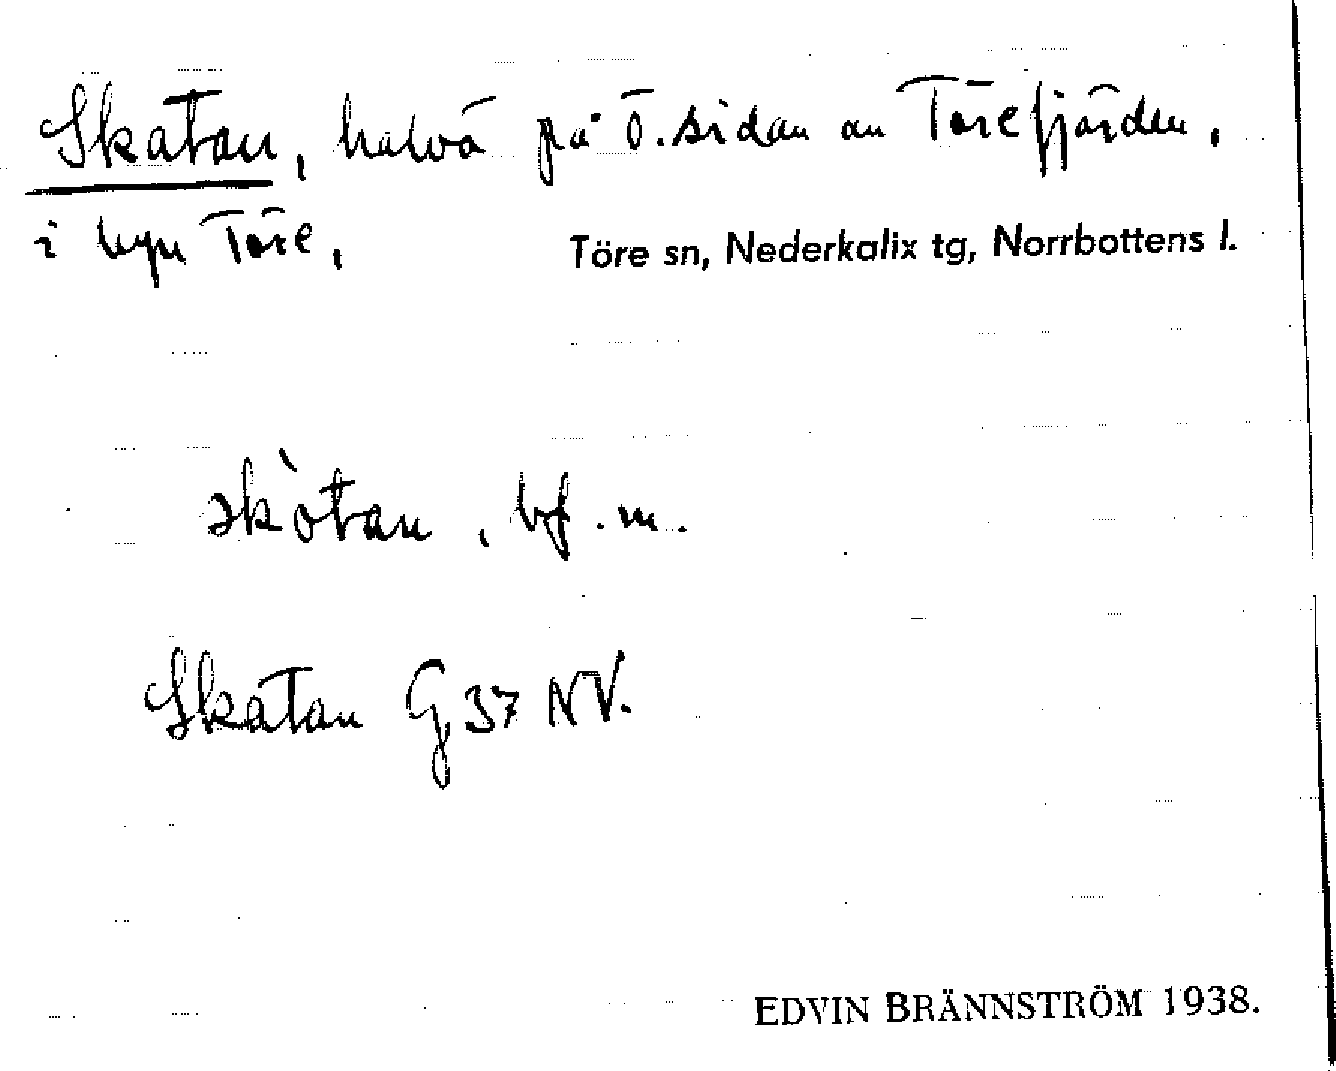 Skatan, halvö på Ö. sidan av Törefjärden,
i byn Töre,
Töre sn, Nederkalix tg, Norrbottens l.
skòtan, bf. m.
Skatan G 37 NV.
EDVIN BRÄNNSTRÖM 1938.